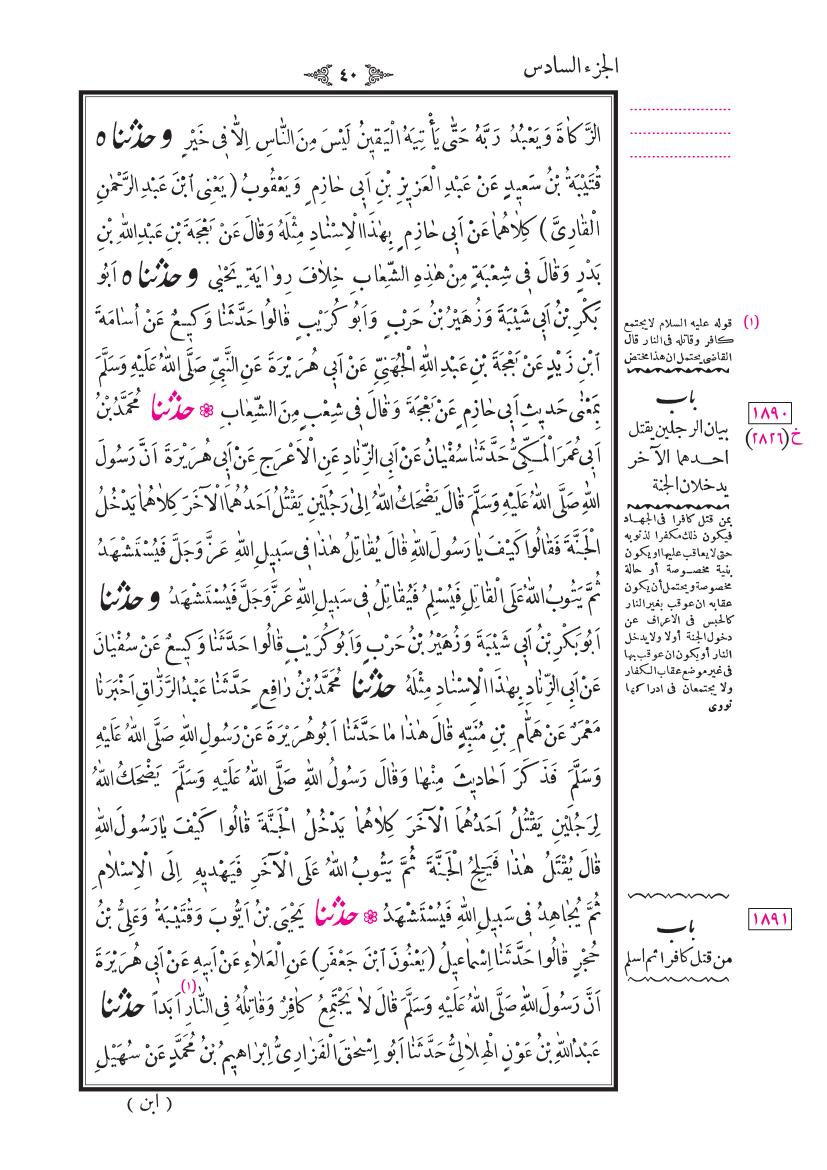 الجزء السادس
٤٠
الزَّكَاةَ وَيَعْبُدُ رَبَّهُ حَتّٰى يَأْتِيَهُ الْيَقِينُ لَيْسَ مِنَ النَّاسِ اِلاَّ فِى خَيْرٍ وحدثناه
قُتَيْبَةُ بْنُ سَعِيدٍ عَنْ عَبْدِ الْعَزِيزِ بْنِ اَبِى حَازِمٍ وَيَعْقُوبُ (يَعْنِى ابْنَ عَبْدِ الرَّحْمٰنِ
الْقَارِىَّ) كِلَاهُمَا عَنْ اَبِى حَازِمٍ بِهٰذَا الْاِسْنَادِ مِثْلَهُ وَقَالَ عَنْ بَعْجَةَ بْنِ عَبْدِ اللّٰهِ بْنِ
بَدْرٍ وَقَالَ فِى شِعْبَةٍ مِنْ هٰذِهِ الشِّعَابِ خِلَافَ رِوَايَةِ يَحْيٰى وحدثناه اَبُو
بَكْرِ بْنُ اَبِى شَيْبَةَ وَزُهَيْرُ بْنُ حَرْبٍ وَاَبُو كُرَيْبٍ قَالُوا حَدَّثَنَا وَكِيعٌ عَنْ اُسَامَةَ
ابْنِ زَيْدٍ عَنْ بَعْجَةَ بْنِ عَبْدِ اللّٰهِ الْجُهَنِىِّ عَنْ اَبِى هُرَيْرَةَ عَنِ النَّبِىِّ صَلَّى اللّٰهُ عَلَيْهِ وَسَلَّمَ
بِمَعْنٰى حَدِيثِ اَبِى حَازِمٍ عَنْ بَعْجَةَ وَقَالَ فِى شِعْبٍ مِنَ الشِّعَابِ ❁ حدثنا مُحَمَّدُ بْنُ
اَبِى عُمَرَ الْمَكِّىُّ حَدَّثَنَا سُفْيَانُ عَنْ اَبِى الزِّنَادِ عَنِ الْاَعْرَجِ عَنْ اَبِى هُرَيْرَةَ اَنَّ رَسُولَ
اللّٰهِ صَلَّى اللّٰهُ عَلَيْهِ وَسَلَّمَ قَالَ يَضْحَكُ اللّٰهُ اِلٰى رَجُلَيْنِ يَقْتُلُ اَحَدُهُمَا الْآخَرَ كِلَاهُمَا يَدْخُلُ
الْجَنَّةَ فَقَالُوا كَيْفَ يَا رَسُولَ اللّٰهِ قَالَ يُقَاتِلُ هٰذَا فِى سَبِيلِ اللّٰهِ عَزَّ وَجَلَّ فَيُسْتَشْهَدُ
ثُمَّ يَتُوبُ اللّٰهُ عَلَى الْقَاتِلِ فَيُسْلِمُ فَيُقَاتِلُ فِى سَبِيلِ اللّٰهِ عَزَّ وَجَلَّ فَيُسْتَشْهَدُ وحدثنا
اَبُو بَكْرِ بْنُ اَبِى شَيْبَةَ وَزُهَيْرُ بْنُ حَرْبٍ وَاَبُو كُرَيْبٍ قَالُوا حَدَّثَنَا وَكِيعٌ عَنْ سُفْيَانَ
عَنْ اَبِى الزِّنَادِ بِهٰذَا الْاِسْنَادِ مِثْلَهُ حدثنا مُحَمَّدُ بْنُ رَافِعٍ حَدَّثَنَا عَبْدُ الرَّزَّاقِ اَخْبَرَنَا
مَعْمَرٌ عَنْ هَمَّامِ بْنِ مُنَبِّهٍ قَالَ هٰذَا مَا حَدَّثَنَا اَبُو هُرَيْرَةَ عَنْ رَسُولِ اللّٰهِ صَلَّى اللّٰهُ عَلَيْهِ
وَسَلَّمَ فَذَكَرَ اَحَادِيثَ مِنْهَا وَقَالَ رَسُولُ اللّٰهِ صَلَّى اللّٰهُ عَلَيْهِ وَسَلَّمَ يَضْحَكُ اللّٰهُ
لِرَجُلَيْنِ يَقْتُلُ اَحَدُهُمَا الْآخَرَ كِلَاهُمَا يَدْخُلُ الْجَنَّةَ قَالُوا كَيْفَ يَا رَسُولَ اللّٰهِ
قَالَ يُقْتَلُ هٰذَا فَيَلِجُ الْجَنَّةَ ثُمَّ يَتُوبُ اللّٰهُ عَلَى الْآخَرِ فَيَهْدِيهِ اِلَى الْاِسْلَامِ
ثُمَّ يُجَاهِدُ فِى سَبِيلِ اللّٰهِ فَيُسْتَشْهَدُ ❁ حدثنا يَحْيَى بْنُ اَيُّوبَ وَقُتَيْبَةُ وَعَلِىُّ بْنُ
حُجْرٍ قَالُوا حَدَّثَنَا اِسْمَاعِيلُ (يَعْنُونَ ابْنَ جَعْفَرٍ) عَنِ الْعَلَاءِ عَنْ اَبِيهِ عَنْ اَبِى هُرَيْرَةَ
اَنَّ رَسُولَ اللّٰهِ صَلَّى اللّٰهُ عَلَيْهِ وَسَلَّمَ قَالَ لَا يَجْتَمِعُ كَافِرٌ وَقَاتِلُهُ فِى النَّارِ (١) اَبَداً حدثنا
عَبْدُ اللّٰهِ بْنُ عَوْنٍ الْهِلَالِىُّ حَدَّثَنَا اَبُو اِسْحٰقَ الْفَزَارِىُّ اِبْرَاهِيمُ بْنُ مُحَمَّدٍ عَنْ سُهَيْلِ
( ابن )
(١) قوله عليه السلام لايجتمع
كافر وقاتله فى النار قال
القاضى يحتمل ان هذا مختص
باب
بيان الرجلين يقتل
احدهما الآخر
يدخلان الجنة
١٨٩٠
خ (٢٨٢٦)
بمن قتل كافرا فى الجهاد
فيكون ذلك مكفرا لذنوبه
حتى لايعاقب عليها او يكون
بنية مخصوصة أو حالة
مخصوصة ويحتمل أن يكون
عقابه ان عوقب بغير النار
كالحبس فى الاعراف عن
دخول الجنة أولا ولايدخل
النار أو يكون ان عوقب بها
فى غير موضع عقاب الكفار
ولايجتمعان فى ادراكها
نووى
١٨٩١
باب
من قتل كافرا ثم اسلم